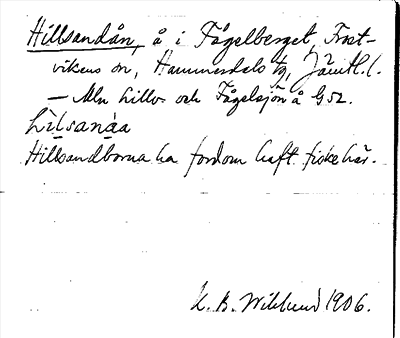 Hillsandån, å i Fågelberget, Frost-
vikens sn, Hammerdals tg, Jämtl. l.
— Mln Lillv- och Fågelsjön å G 52.
Lìlsanáa
Hillsandborna ha fordom haft fiske här.
K. B. Wiklund 1906.